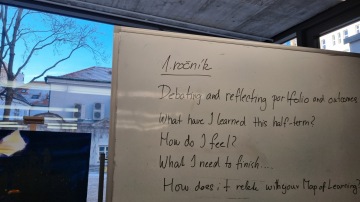 1. ročník
Debating and reflecting portfolio and outcomes
What have I learned this half-term?
How do I feel?
What I need to finish....
How does it relate with your Map of Learning?